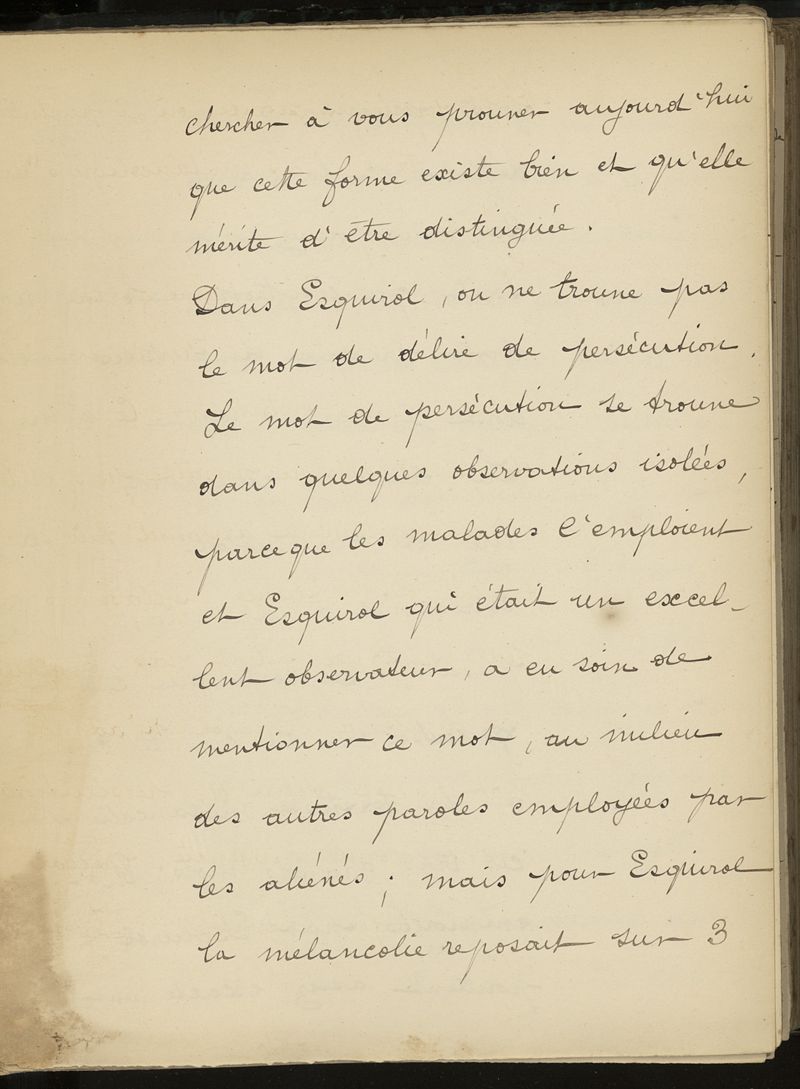 chercher à vous prouver aujourd'hui
que cette forme existe bien et qu'elle
mérite d'être distinguée.
Dans Esquirol, on ne trouve pas
le mot de délire de persécution.
Le mot de persécution se trouve
dans quelques observations isolées,
parceque les malades l'emploient
et Esquirol qui était un excel-
lent observateur, a eu soin de
mentionner ce mot, au milieu
des autres paroles employées par
les aliénés; mais pour Esquirol
la mélancolie reposait sur 3